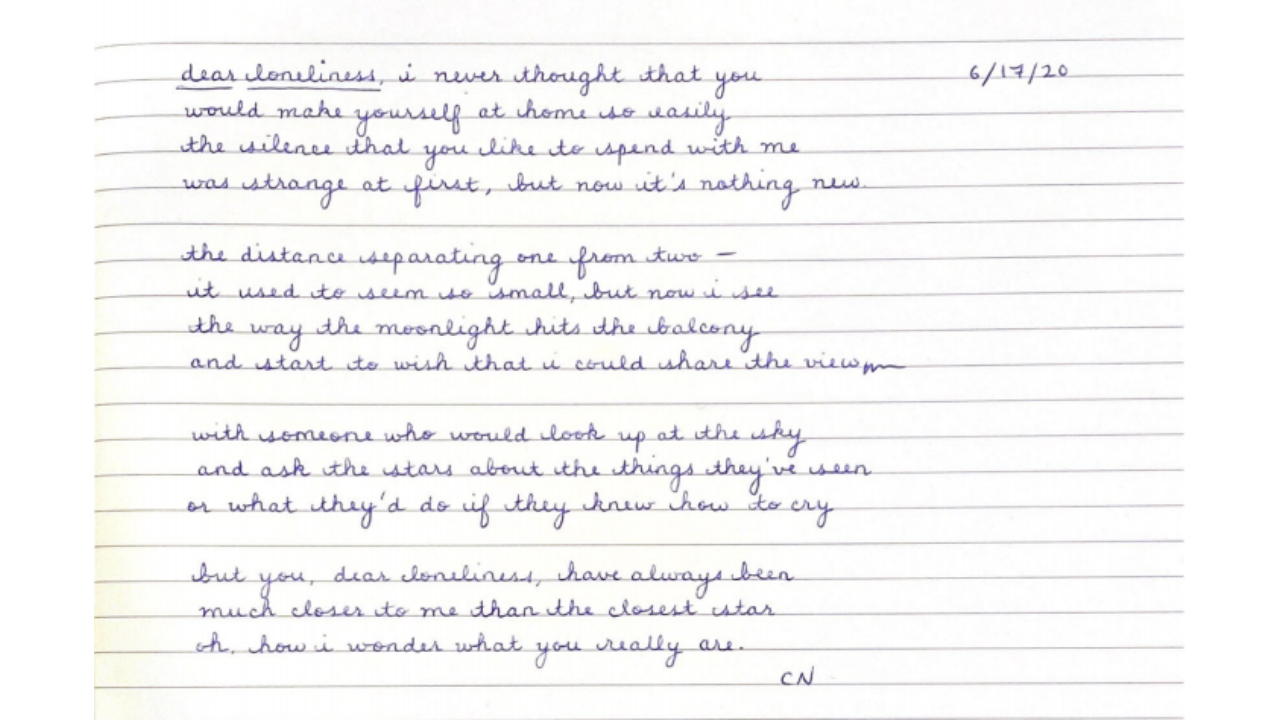 dear loneliness, i never thought that you 6/17/20
would make yourself at home so easily
the silence that you like to spend with me
was strange at first, but now it's nothing new.
the distance separating one from two —
it used to seem so small, but now i see
the way the moonlight hits the balcony
and start to wish that i could share the view
with someone who would look up at the sky
and ask the stars about the things they've seen
or what they'd do if they knew how to cry
but you, dear loneliness, have always been
much closer to me than the closest star
oh, how i wonder what you really are.
CN